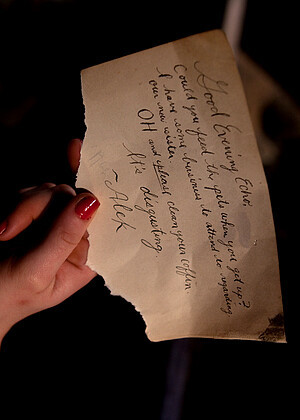 Good Evening Echo,
Could you feed the pets when you get up?
I have some business to attend to regarding
our new sister.
OH and please clean your coffin.
It's disgusting.
- Alek